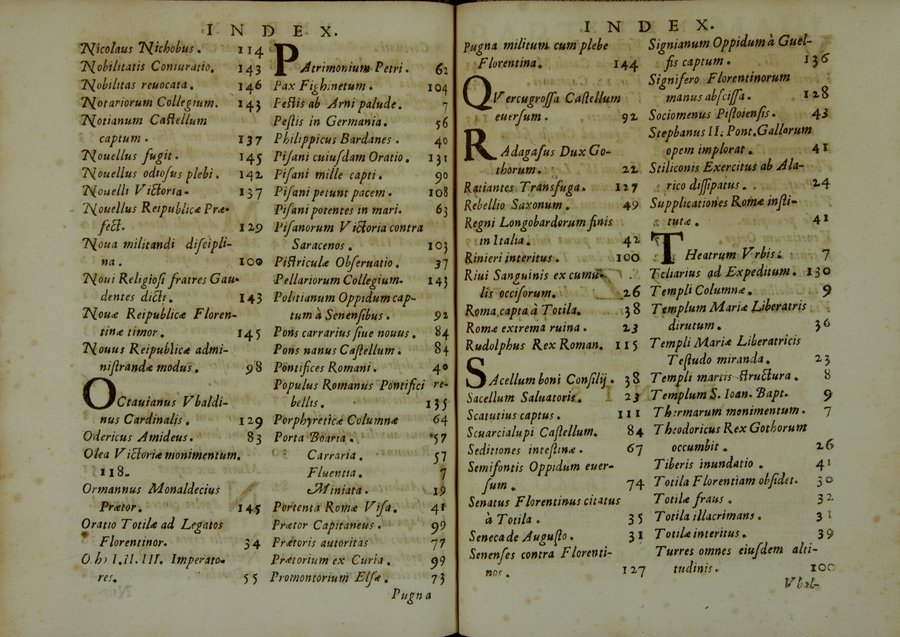 INDEX.
Nicolaus Nichobus. 114
Nobilitatis Coniuratio. 143
Nobilitas reuocata. 146
Notariorum Collegium. 143
Notianum Castellum
captum. 137
Nouellus fugit. 145
Nouellus odiosus plebi. 142
Nouelli Victoria. 137
Nouellus Reipublicæ Præ-
fect. 129
Noua militandi discipli-
na. 100
Noui Religiosi fratres Gau-
dentes dicti. 143
Nouæ Reipublicæ Floren-
tinæ timor. 145
Nouus Reipublicæ admi-
nistrandæ modus. 98
Octauianus Vbaldi-
nus Cardinalis. 129
Odericus Amideus. 83
Olea Victoriæ monimentum.
118.
Ormannus Monaldecius
Prætor. 145
Oratio Totilæ ad Legatos
Florentinor. 34
I.II.III. Imperato-
res. 55
PAtrimonium Petri. 62
Pax Fighinetum. 104
Pestis ab Arni palude. 7
Pestis in Germania. 56
Philippicus Bardanes. 40
Pisani cuiusdam Oratio. 131
Pisani mille capti. 90
Pisani petunt pacem. 108
Pisani potentes in mari. 63
Pisanorum Victoria contra
Saracenos. 103
Pistriculæ Obseruatio. 37
Pellariorum Collegium. 143
Politianum Oppidum cap-
tum à Senensibus. 92
Pons carrarius siue nouus. 84
Pons nanus Castellum. 84
Pontifices Romani. 40
Populus Romanus Pontifici re-
bellis. 135
Porphyreticæ Columnæ 64
Porta Boaria. 57
Carraria. 57
Fluentia. 7
Miniata. 19
Portenta Romæ Visa. 41
Prætor Capitaneus. 99
Prætoris autoritas 77
Prætorium ex Curia. 99
Promontorium Elsæ. 73
Pugna
INDEX.
Pugna militum cum plebe
Florentina. 144
QVercugrossa Castellum
euersum. 92
RAdagasus Dux Go-
thorum. 22
Ratiantes Transfuga. 127
Rebellio Saxonum. 49
Regni Longobardorum finis
in Italia. 42
Rinieri interitus. 100
Riui Sanguinis ex cumu-
lis occisorum. 26
Roma capta à Totila. 38
Romæ extrema ruina. 23
Rudolphus Rex Roman. 115
SAcellum boni Consilij. 38
Sacellum Saluatoris. 23
Scatutius captus. 111
Scuarcialupi Castellum. 84
Seditiones intestinæ. 67
Semifontis Oppidum euer-
sum. 74
Senatus Florentinus citatus
à Totila. 35
Seneca de Augusto. 31
Senenses contra Florenti-
nos. 127
Signianum Oppidum à Guel-
fis captum. 136
Signifero Florentinorum
manus abscissa. 128
Sociomenus Pistoiensis. 43
Stephanus II. Pont. Gallorum
opem implorat. 41
Stiliconis Exercitus ab Ala-
rico dissipatus. 24
Supplicationes Romæ insti-
tutæ. 41
THeatrum Vrbis. 7
Teliarius ad Expeditum. 130
Templi Columnæ. 9
Templum Mariæ Liberatris
dirutum. 36
Templi Mariæ Liberatricis
Testudo miranda. 23
Templi martis structura. 8
Templum S. Ioan. Bapt. 9
Thermarum monimentum. 7
Theodoricus Rex Gothorum
occumbit. 26
Tiberis inundatio. 41
Totila Florentiam obsidet. 30
Totilæ fraus. 32
Totila illacrimans. 31
Totilæ interitus. 39
Turres omnes eiusdem alti-
tudinis. 100
Vbal-